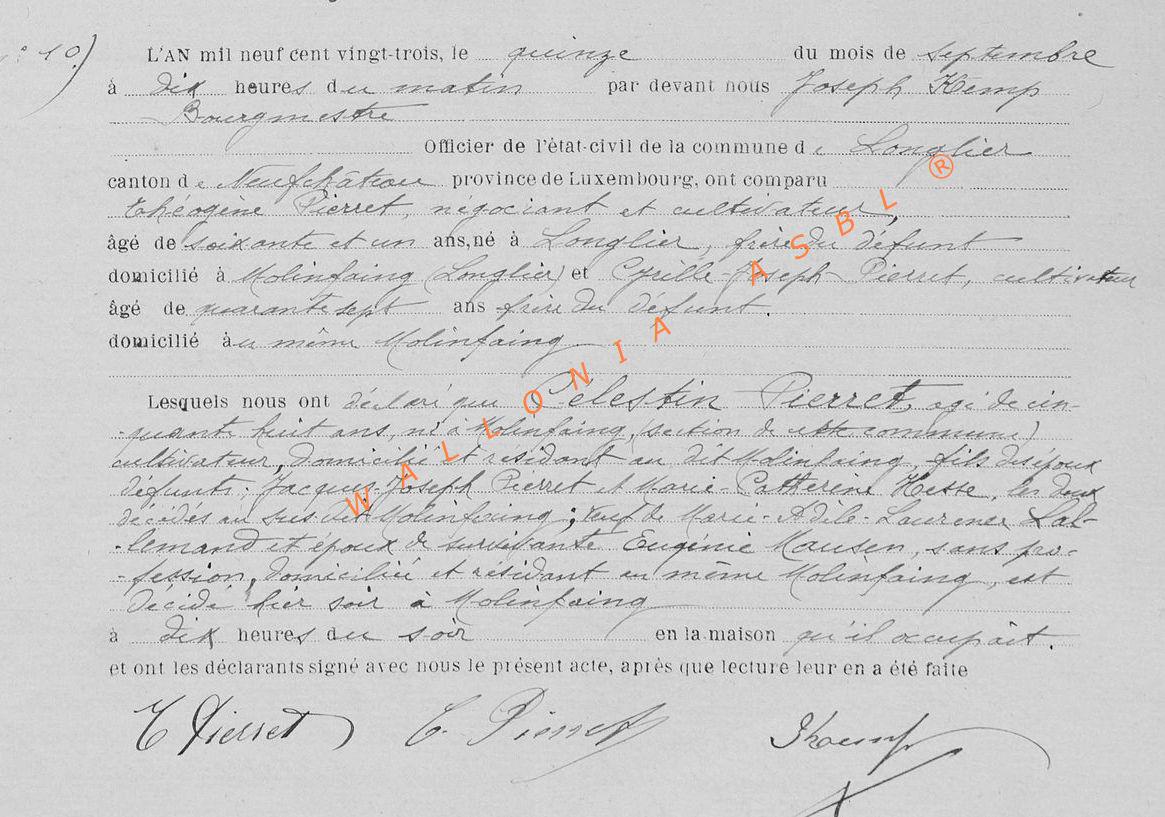 n° 10)
L'AN mil neuf cent vingt-trois, le quinze du mois de septembre
à dix heures du matin par devant nous Joseph Kemp
Bourgmestre
Officier de l'état-civil de la commune de Longlier
canton de Neufchâteau province de Luxembourg, ont comparu
Théogène Pierret, négociant et cultivateur,
âgé de soixante et un ans, né à Longlier, frère du défunt
domicilié à Molinfaing (Longlier) et Cyrille-Joseph Pierret, cultivateur
âgé de quarante sept ans frère du défunt.
domicilié au même Molinfaing
Lesquels nous ont déclaré que Célestin Pierret, agé de cin-
-quante huit ans, né à Molinfaing, (section de cette commune)
cultivateur, domicilié et résidant au dit Molinfaing, fils des époux
défunts: Jacques-Joseph Pierret et Marie-Catherine Hesse, les deux
décédés au sus dit Molinfaing; veuf de Marie-Adèle-Laurence Lal-
-lemand et époux de survivante Eugénie Mausen, sans pro-
-fession, domiciliée et résidant au même Molinfaing, est
décédé hier soir à Molinfaing
à dix heures du soir en la maison qu'il occupait.
et ont les déclarants signé avec nous le présent acte, après que lecture leur en a été faite
T Pierret C. Pierret JKemp
WALLONIA ASBL ®